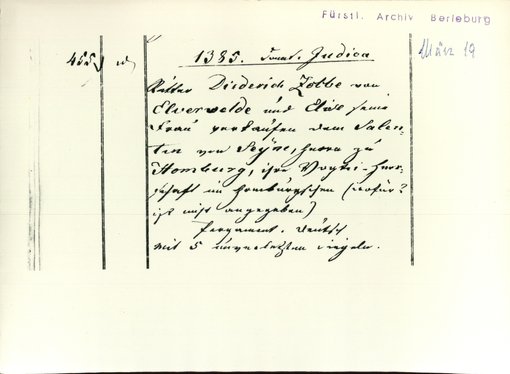 Fürstl. Archiv Berleburg
März 19
455
1385. Sonnt. Judica
Ritter Diederich Zobbe von
Elverwelde und Else seine
Frau verkaufen dem Salen-
tin von Seyne, Herrn zu
Homburg, ihre Vogtei-Herr-
schaft im Homburgschen (wofür?
ist nicht angegeben)
Pergament. Deutsch
mit 5 unverletzten Siegeln.